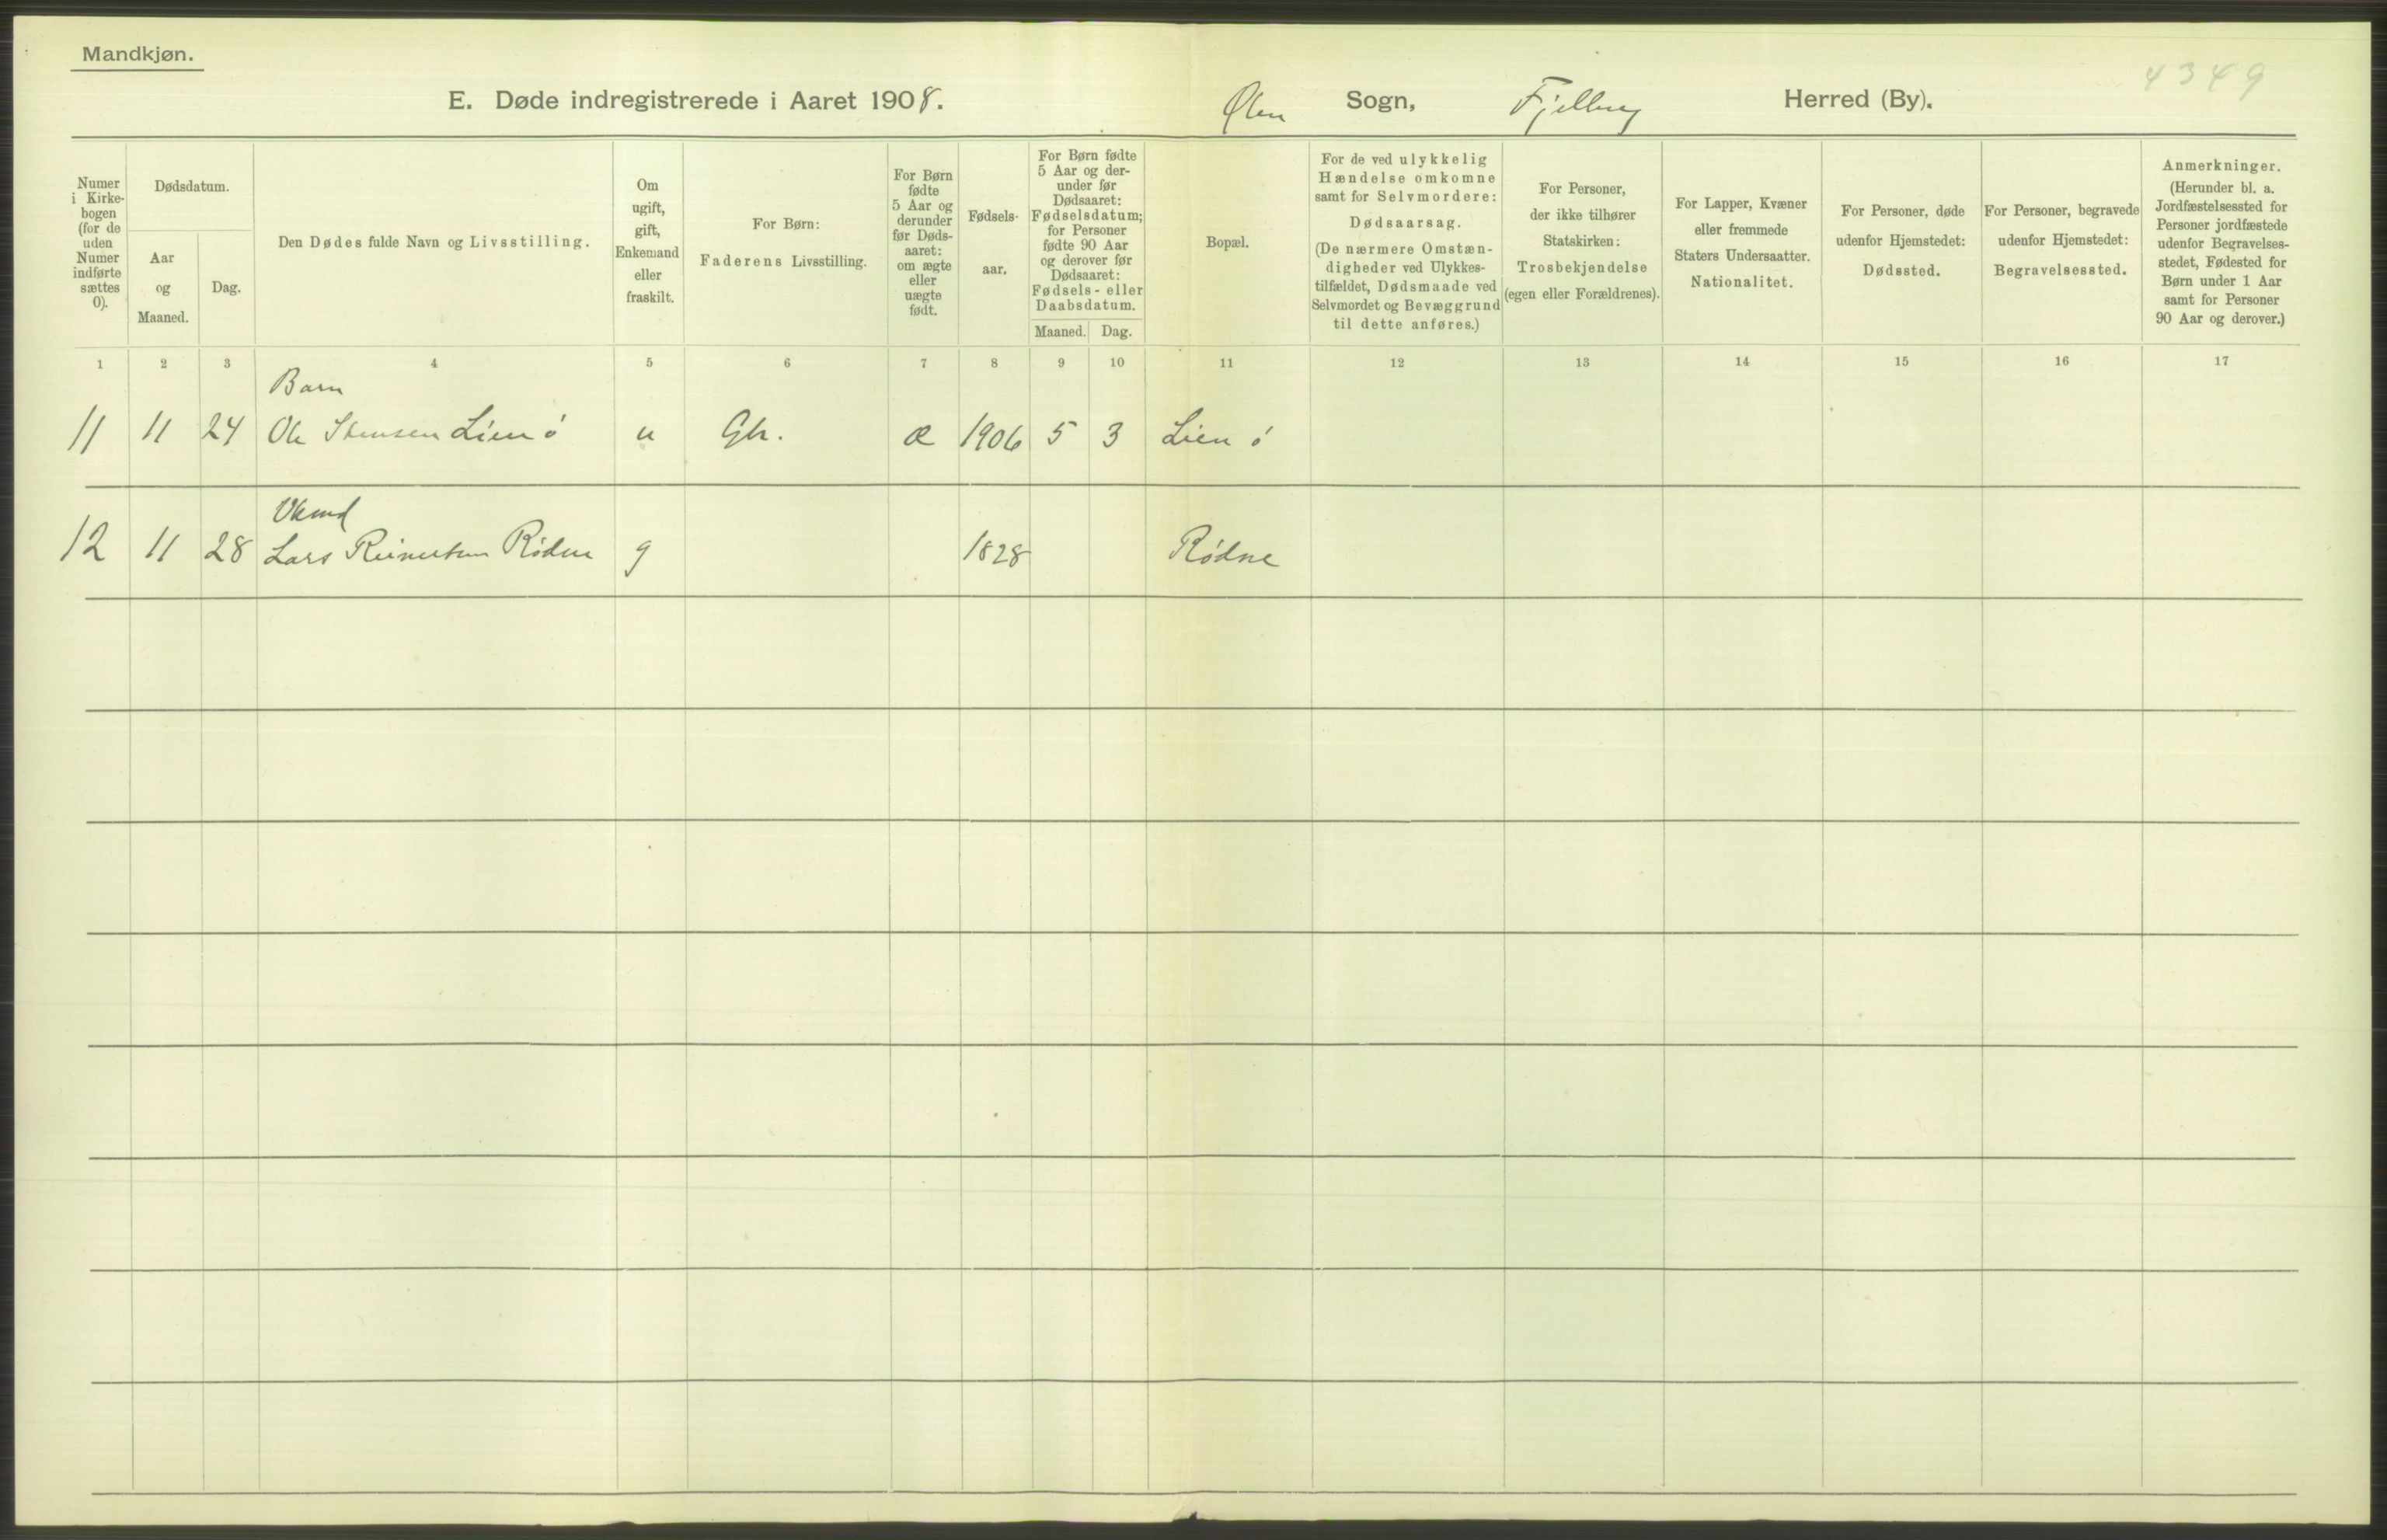 Mandkjøn.
4349
E. Døde indregistrerede i Aaret 1908. Ølen Sogn, Fjelberg Herred (By).
Numer
i Kirke-
bogen
(for de
uden
Numer
indførte
sættes
0).
Dødsdatum.
Aar
og
Maaned.
Dag.
Den Dødes fulde Navn og Livsstilling.
Om
ugift,
gift,
Enkemand
eller
fraskilt.
For Børn:
Faderens Livsstilling.
For Børn
fødte
5 Aar og
derunder
før Døds-
aaret:
om ægte
eller
uægte
født.
Fødsels-
aar.
For Børn fødte
5 Aar og der-
under før
Dødsaaret:
Fødselsdatum;
for Personer
fødte 90 Aar
og derover før
Dødsaaret:
Fødsels- eller
Daabsdatum.
Maaned. Dag.
Bopæl.
For de ved ulykkelig
Hændelse omkomne
samt for Selvmordere:
Dødsaarsag.
(De nærmere Omstæn-
digheder ved Ulykkes-
tilfældet, Dødsmaade ved
Selvmordet og Bevæggrund
til dette anføres.)
For Personer,
der ikke tilhører
Statskirken:
Trosbekjendelse
(egen eller Forældrenes).
For Lapper, Kvæner
eller fremmede
Staters Undersaatter.
Nationalitet.
For Personer, døde
udenfor Hjemstedet:
Dødssted.
For Personer, begravede
udenfor Hjemstedet:
Begravelsessted.
Anmerkninger.
(Herunder bl. a.
Jordfæstelsessted for
Personer jordfæstede
udenfor Begravelses-
stedet, Fødested for
Børn under 1 Aar
samt for Personer
90 Aar og derover.)
1 2 3 4 5 6 7 8 9 10 11 12 13 14 15 16 17
Barn
11 11 24 Ole Stensen Lien ø u Gbr. æ 1906 5 3 Lien ø
12 11 28 Lars Reinertsen Rødne g 1828 Rødne